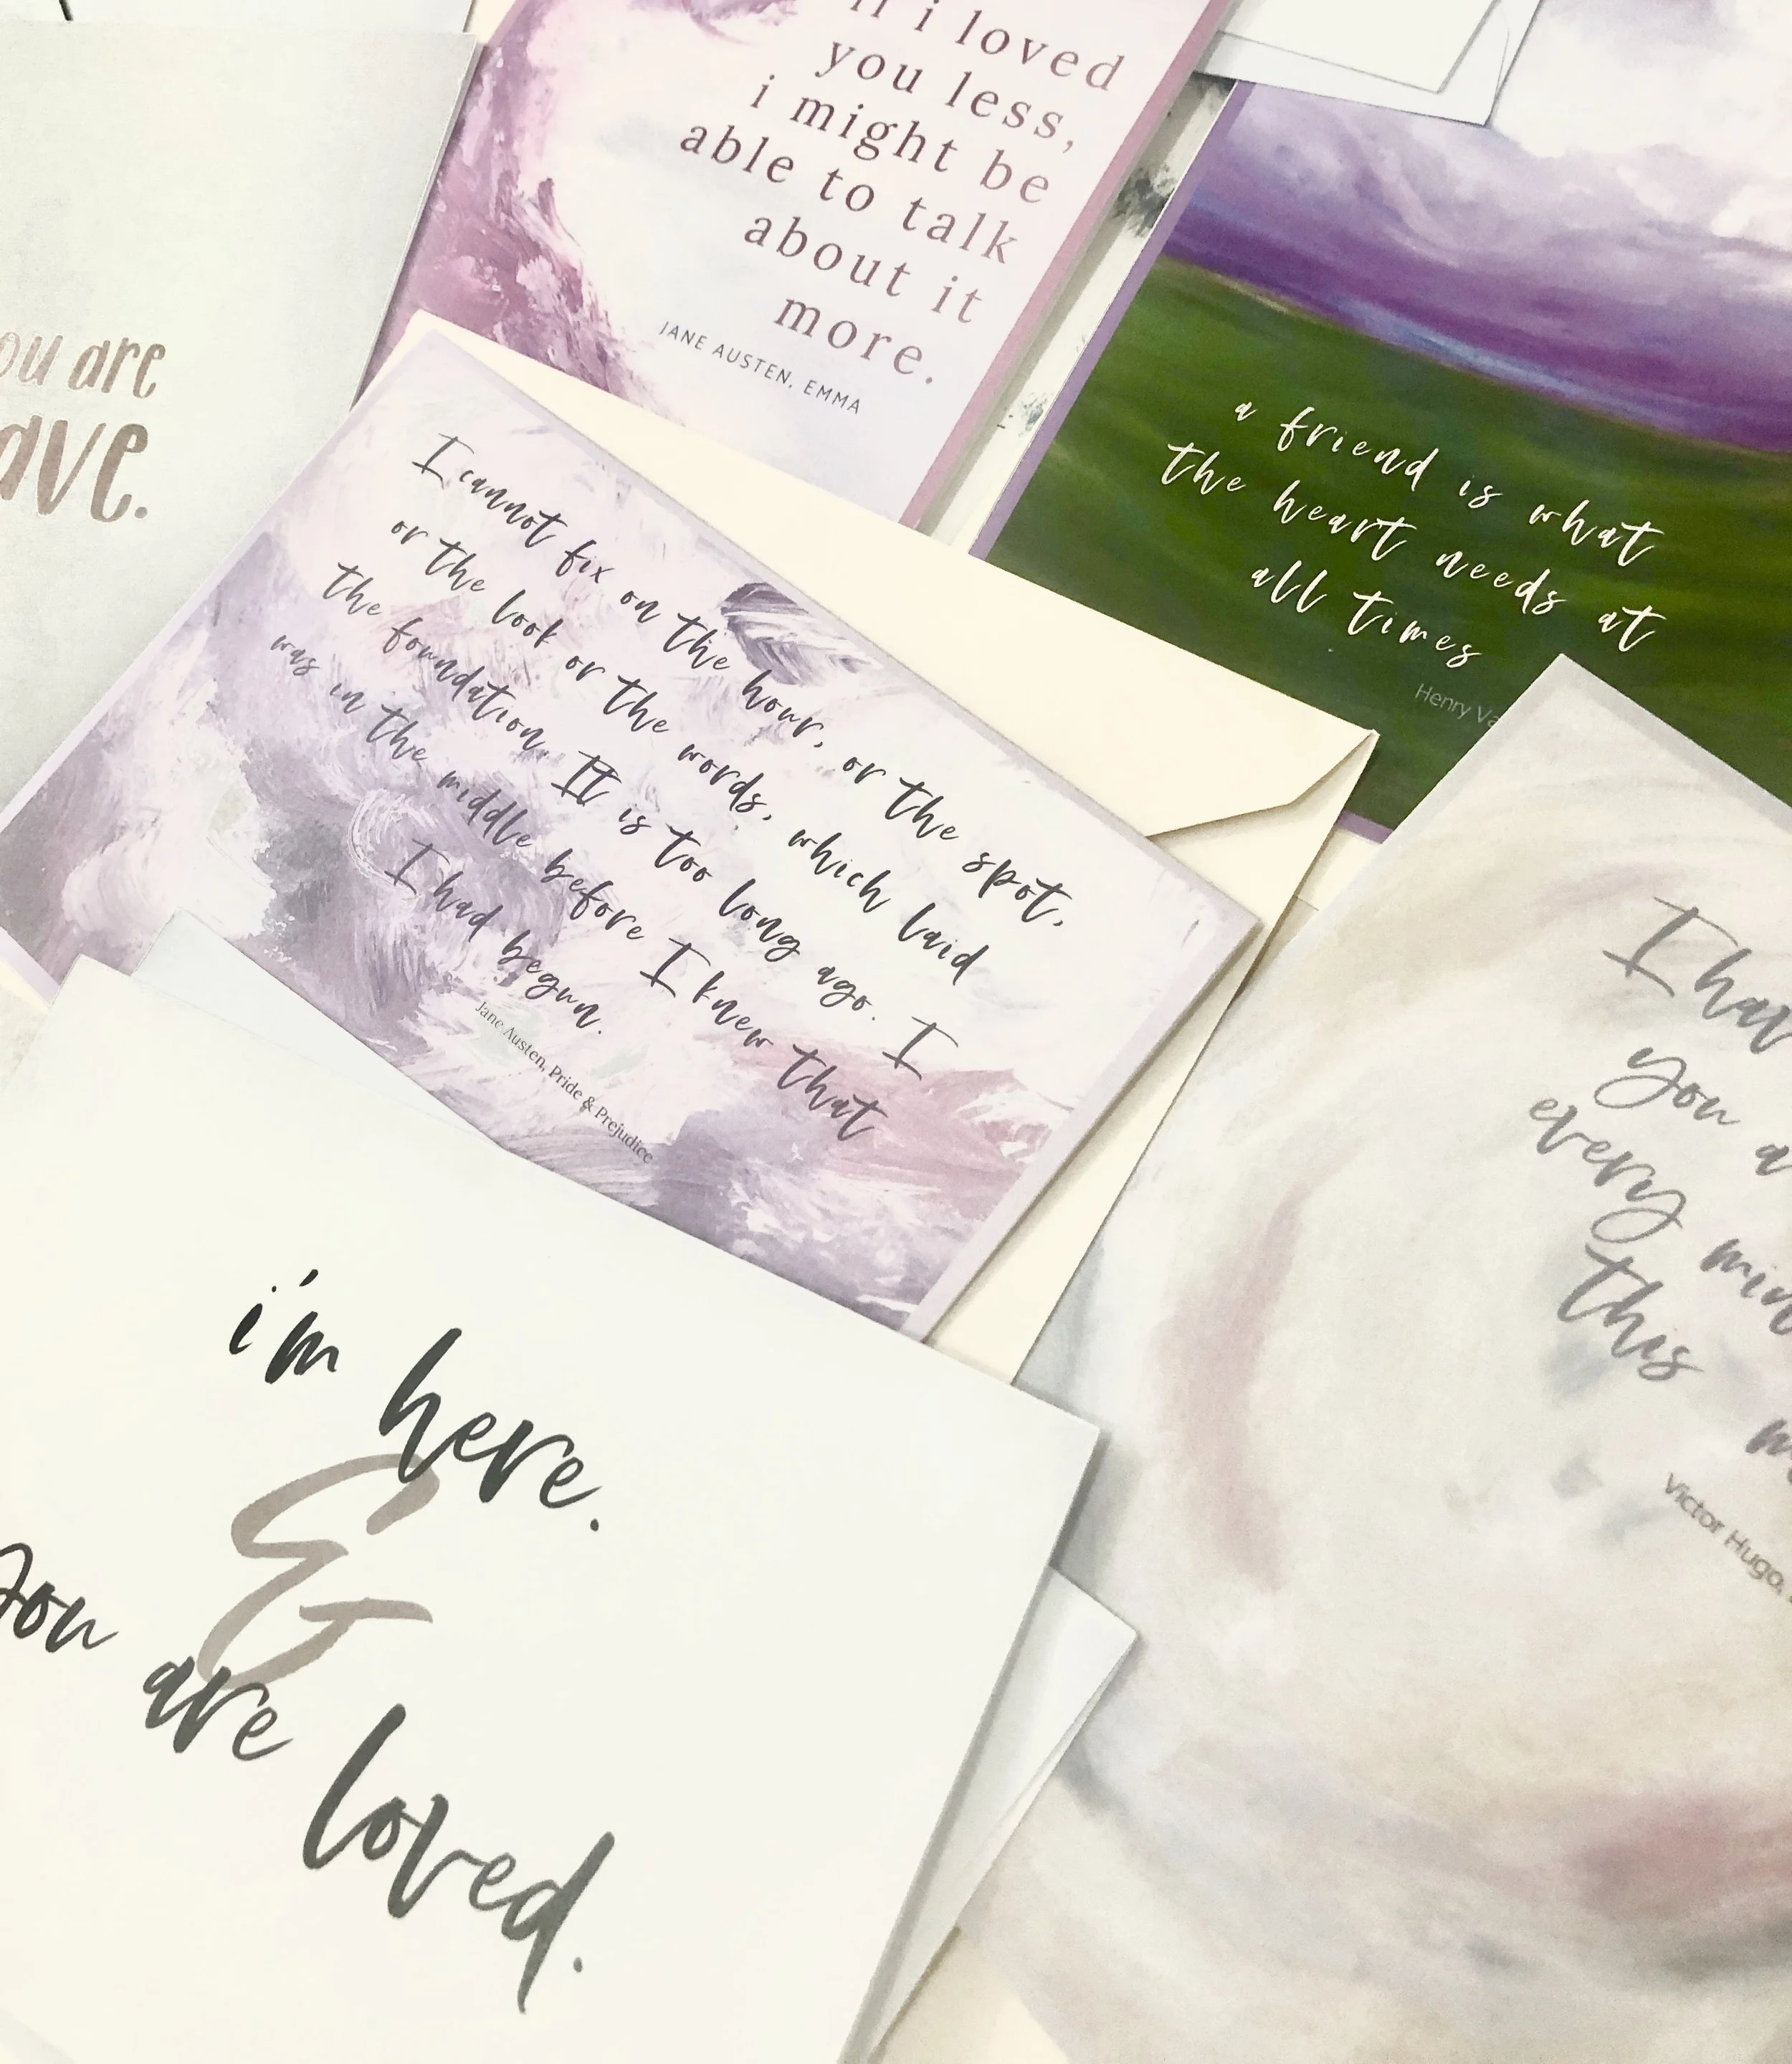 if i loved
you less,
i might be
able to talk
about it
more.
JANE AUSTEN, EMMA
a friend is what
the heart needs at
all times
Henry
are
I cannot fix on the hour, or the spot,
or the look or the words, which laid
the foundation. It is too long ago. I
was in the middle before I knew that
I had begun.
Jane Austen, Pride & Prejudice
I
you
every
this
Victor Hugo,
i'm here.
&
you
are loved.